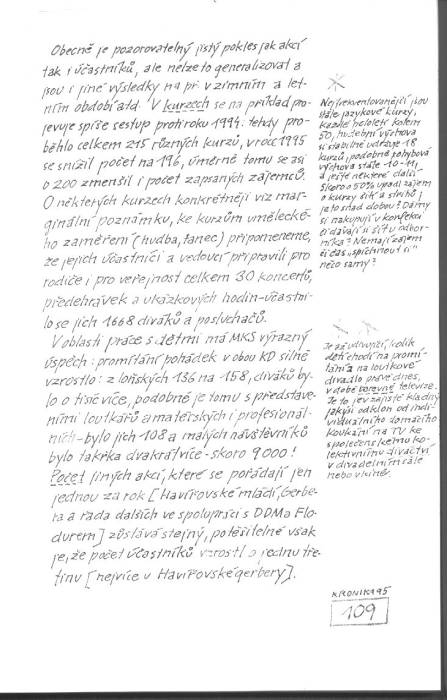 Obecně je pozorovatelný jistý pokles jak akcí
tak i účastníků, ale nelze to generalizovat a
jsou i jiné výsledky na př. v zimním a let-
ním období atd. V kurzech se na příklad pro-
jevuje spíše sestup proti roku 1994: tehdy pro-
běhlo celkem 215 různých kurzů, v roce 1995
se snížil počet na 196, úměrně tomu se asi
o 200 zmenšil i počet zapsaných zájemců.
O některých kurzech konkrétněji viz mar-
ginální poznámku, ke kurzům umělecké-
ho zaměření (hudba, tanec) připomeneme,
že jejich účastníci a vedoucí připravili pro
rodiče i pro veřejnost celkem 30 koncertů,
předehrávek a ukázkových hodin - účastni-
lo se jich 1668 diváků a posluchačů.
V oblasti práce s dětmi má MKS výrazný
úspěch: promítání pohádek v obou KD silně
vzrostlo: z loňských 136 na 158, diváků by-
lo o tisíc více, podobné je tomu s představe-
ními loutkářů amatérských i profesionál-
ních - bylo jich 108 a malých návštěvníků
bylo takřka dvakrát více - skoro 9000!
Počet jiných akcí, které se pořádají jen
jednou za rok [Havířovské mládí, Gerbe-
ra a řada dalších ve spolupráci s DDM a Flo-
durem] zůstává stejný, potěšitelné však
je, že počet účastníků vzrostl o jednu tře-
tinu [nejvíce u Havířovské gerbery].
Nejfrekventovanější jsou
stále jazykové kurzy,
každé pololetí kolem
50, hudební výchova
si stabilně udržuje 18
kurzů, podobně pohybová
výchova stále 10-11,
a ještě některé další.
Skoro o 50% upadl zájem
o kurzy šití a střihů;
je to snad dobou? Dámy
si nakupují v konfekci
či dávají si šít u odbor-
níka? Nemají zájem
či čas „spíchnout si"
něco samy?
Je až udivující, kolik
dětí chodí na promí-
tání a na loutkové
divadlo právě dnes,
v době barevné televize.
Je to jev zajisté kladný,
jakýsi odklon od indi-
viduálního domácího
koukání na TV ke
společenskému ko-
lektivnímu diváctví
v divadelním sále
nebo v kině.
KRONIKA 95
109